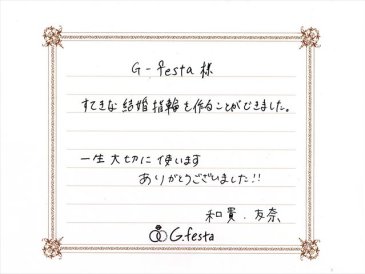 G-festa 様
すてきな結婚指輪を作ることができました。
一生大切に使います
ありがとうございました!!
和貴・友奈
G.festa